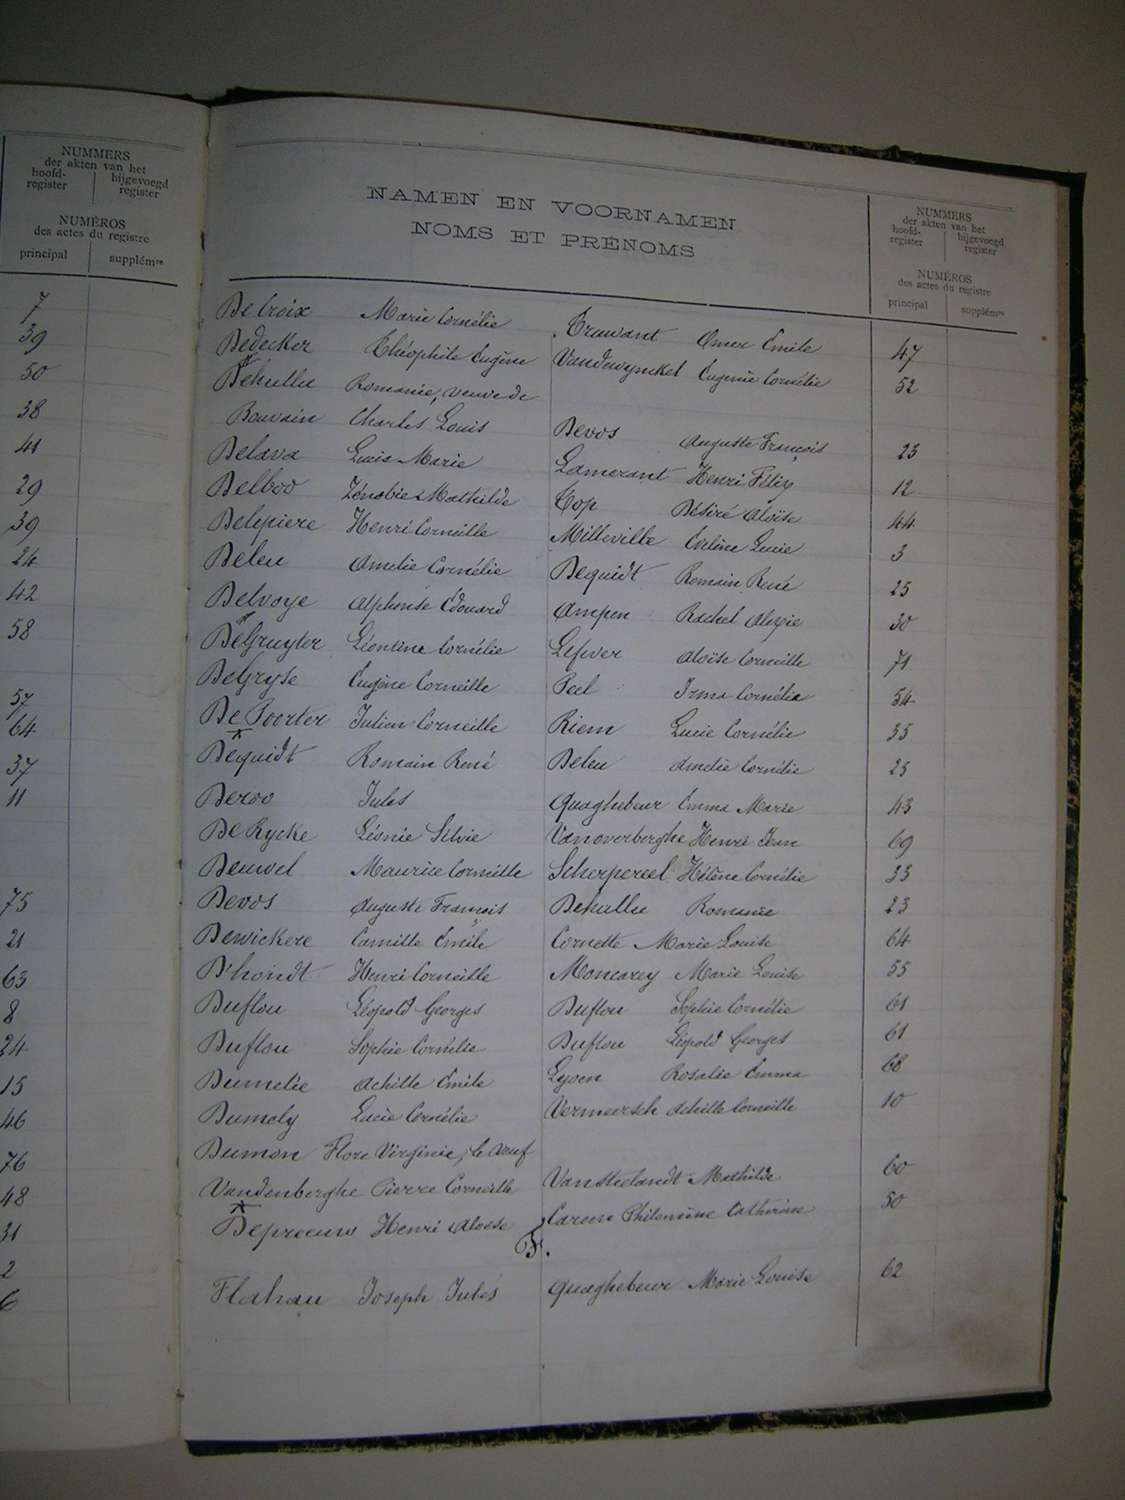 NUMMERS
der akten van het
hoofd-
register
bijgevoegd
register
NUMÉROS
des actes du registre
principal
supplémre
7
39
50
38
41
29
39
24
42
58
57
64
37
11
75
21
63
8
24
15
46
76
48
31
2
6
NAMEN EN VOORNAMEN
NOMS ET PRÉNOMS
NUMMERS
der akten van het
hoofd-
register
bijgevoegd
register
NUMÉROS
des actes du registre
principal
supplémre
De Croix Marie Cornélie Truwant Omer Émile 47
Dedecker Théophile Eugène Vandewynckel Eugénie Cornélie 52
Dehulle Romanie, veuve de
Bouvain Charles Louis Devos Auguste François 23
Delava Lucie Marie Lamerant Henri Félix 12
Delboo Zénobie Mathilde Top Désiré Aloïse 44
Delepiere Henri Corneille Milleville Lucie 3
Deleu Amélie Cornélie Dequidt Romain René 25
Delvoye Alphonse Édouard Ampen Rachel Alexie 30
DeGruyter Léontine Cornélie Lefever Aloïse Corneille 71
DeGryse Eugène Corneille Peel Irma Cornélie 54
De Poorter Julien Corneille Riem Lucie Cornélie 35
Dequidt Romain René Deleu Amélie Cornélie 25
Deroo Jules Quaghebeur Emma Marie 43
De Rycke Léonie Silvie Vanoverberghe Henri Jean 69
Deuwel Maurice Corneille Scherpereel Hélène Cornélie 33
Devos Auguste François Dehulle Romanie 23
Dewickere Camille Émile Cornette Marie Louise 64
D'hondt Henri Corneille Moncarey Marie Louise 55
Duflou Léopold Georges Duflou Sophie Cornélie 61
Duflou Sophie Cornélie Duflou Léopold Georges 61
Dumelie Achille Émile Lysen Rosalie Emma 68
Dumoly Lucie Cornélie Vermeersch Achille Corneille 10
Dumon Flore Virginie, le veuf
Vandenberghe Pierre Corneille Vanstedandt Mathilde 60
Depreeuw Henri Aloïse Careme Philomène Catherine 50
F.
Flahau Joseph Jules Quaghebeur Marie Louise 62